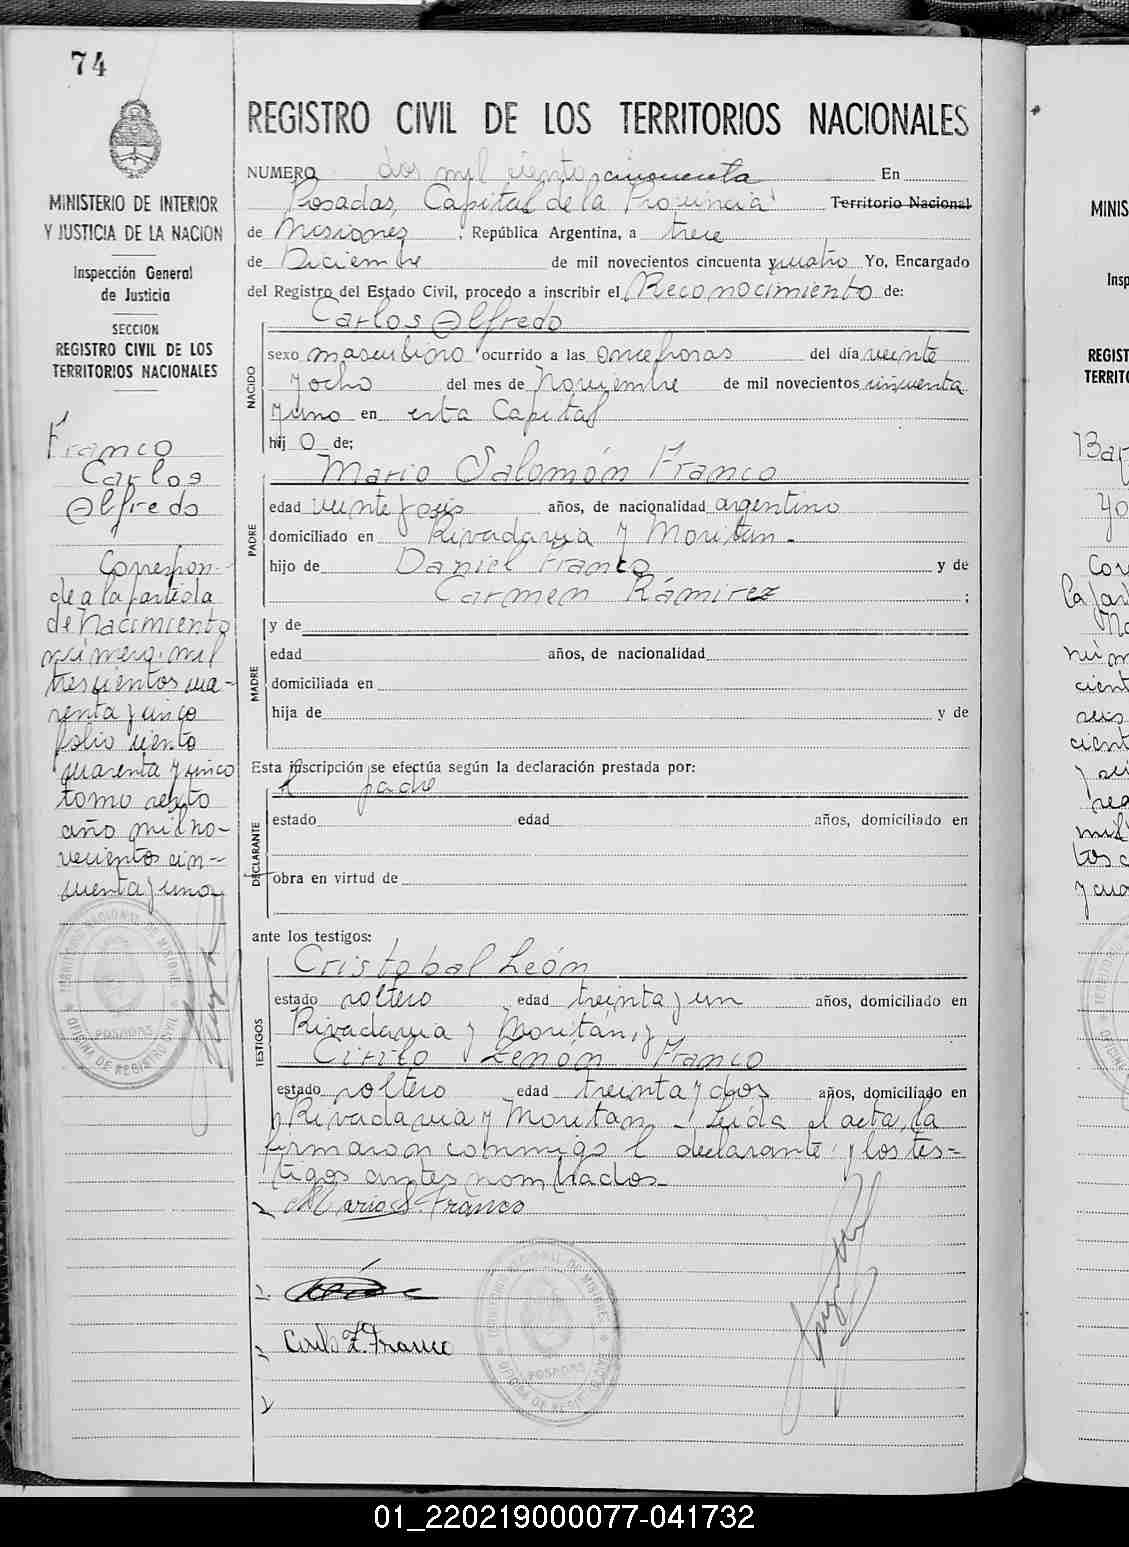 74
MINISTERIO DE INTERIOR
Y JUSTICIA DE LA NACION
Inspección General
de Justicia
SECCION
REGISTRO CIVIL DE LOS
TERRITORIOS NACIONALES
Franco
Carlos
Alfredo
Correspon-
de a la partida
de Nacimiento
número mil
trescientos cua-
renta y cinco
folio ciento
cuarenta y cinco
tomo sexto
año mil no-
vecientos cin-
cuenta y uno
REGISTRO CIVIL DE LOS TERRITORIOS NACIONALES
NUMERO dos mil ciento cincuenta En
Posadas, Capital de la Provincia Territorio Nacional
de Misiones, República Argentina, a trece
de Diciembre de mil novecientos cincuenta y cuatro Yo, Encargado
del Registro del Estado Civil, procedo a inscribir el Reconocimiento de:
NACIDO
Carlos Alfredo
sexo masculino ocurrido a las once horas del día veinte
y ocho del mes de Noviembre de mil novecientos cincuenta
y uno en esta Capital
hij o de;
PADRE
Mario Salomón Franco
edad veinte y seis años, de nacionalidad argentino
domiciliado en Rivadavia y Moritan-
hijo de Daniel Franco y de
Carmen Rámirez ;
MADRE
y de
edad años, de nacionalidad
domiciliada en
hija de y de
Esta inscripción se efectúa según la declaración prestada por:
DECLARANTE
el padre
estado edad años, domiciliado en
obra en virtud de
ante los testigos:
TESTIGOS
Cristobal León
estado soltero edad treinta y un años, domiciliado en
Rivadavia y Moritán, y
Cirilo Zenón Franco
estado soltero edad treinta y dos años, domiciliado en
Rivadavia y Moritan - Leída el acta, la
firmaron conmigo el declarante y los tes-
tigos antes nombrados-
Mario S. Franco
Cirilo Z. Franco
TERRITORIO NACIONAL DE MISIONES
POSADAS
OFICINA DE REGISTRO CIVIL
TERRITORIO NACIONAL DE MISIONES
POSADAS
OFICINA DE REGISTRO CIVIL
MINIS
Insp
REGIST
TERRIT
01_220219000077-041732